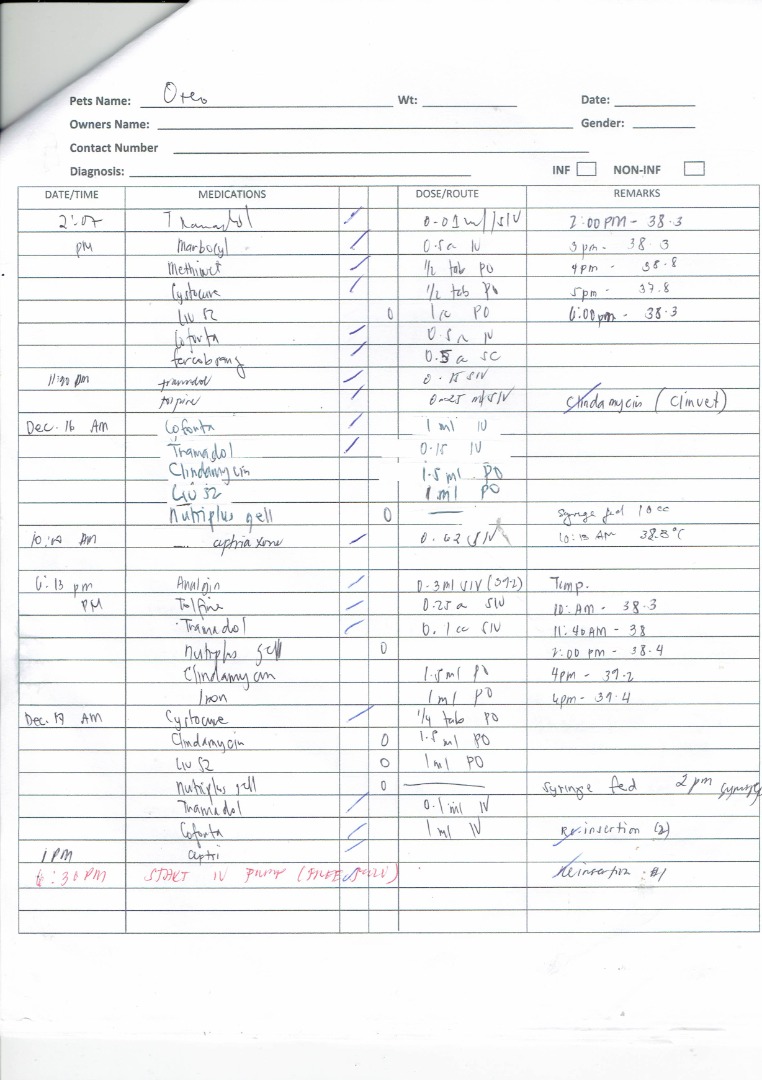 Pets Name: Oreo Wt: Date:
Owners Name: Gender:
Contact Number
Diagnosis: INF NON-INF
DATE/TIME MEDICATIONS DOSE/ROUTE REMARKS
Tramadol 2:00 PM - 38.3
PM Marbocyl IV 3pm - 38.3
1/2 tab PO 4pm - 38.8
Cystocure 1/2 tab PO 5pm - 37.8
Liv 52 O PO 6:00pm - 38.3
Coforta IV
SC
11:30 pm tramadol 0.15 SIV
Clindamycin (Clinvet)
Dec. 16 AM Coforta 1 ml IV
Tramadol 0.15 IV
Clindamycin 1.5 ml PO
Liv 52 1 ml PO
Nutriplus gell O Syringe fed 10 cc
AM SIV 10:15 AM 38.3°C
6:13 pm Analgin 0.3ml SIV (39.2) Temp.
PM Tolfine SIV 10: AM - 38.3
Tramadol 0.1 cc SIV 11:40 AM - 38
Nutriplus gell O 2:00 pm - 38.4
Clindamycin 1.5ml PO 4pm - 39.2
Iron 1 ml PO 6pm - 39.4
AM Cystocure 1/4 tab PO
Clindamycin O 1.5 ml PO
Liv 52 O 1 ml PO
Nutriplus gell O Syringe fed 2 pm
Tramadol 0.1 ml IV
Coforta 1 ml IV Re-insertion (2)
1 PM ceptri
:30 PM START IV Reinsertion #1